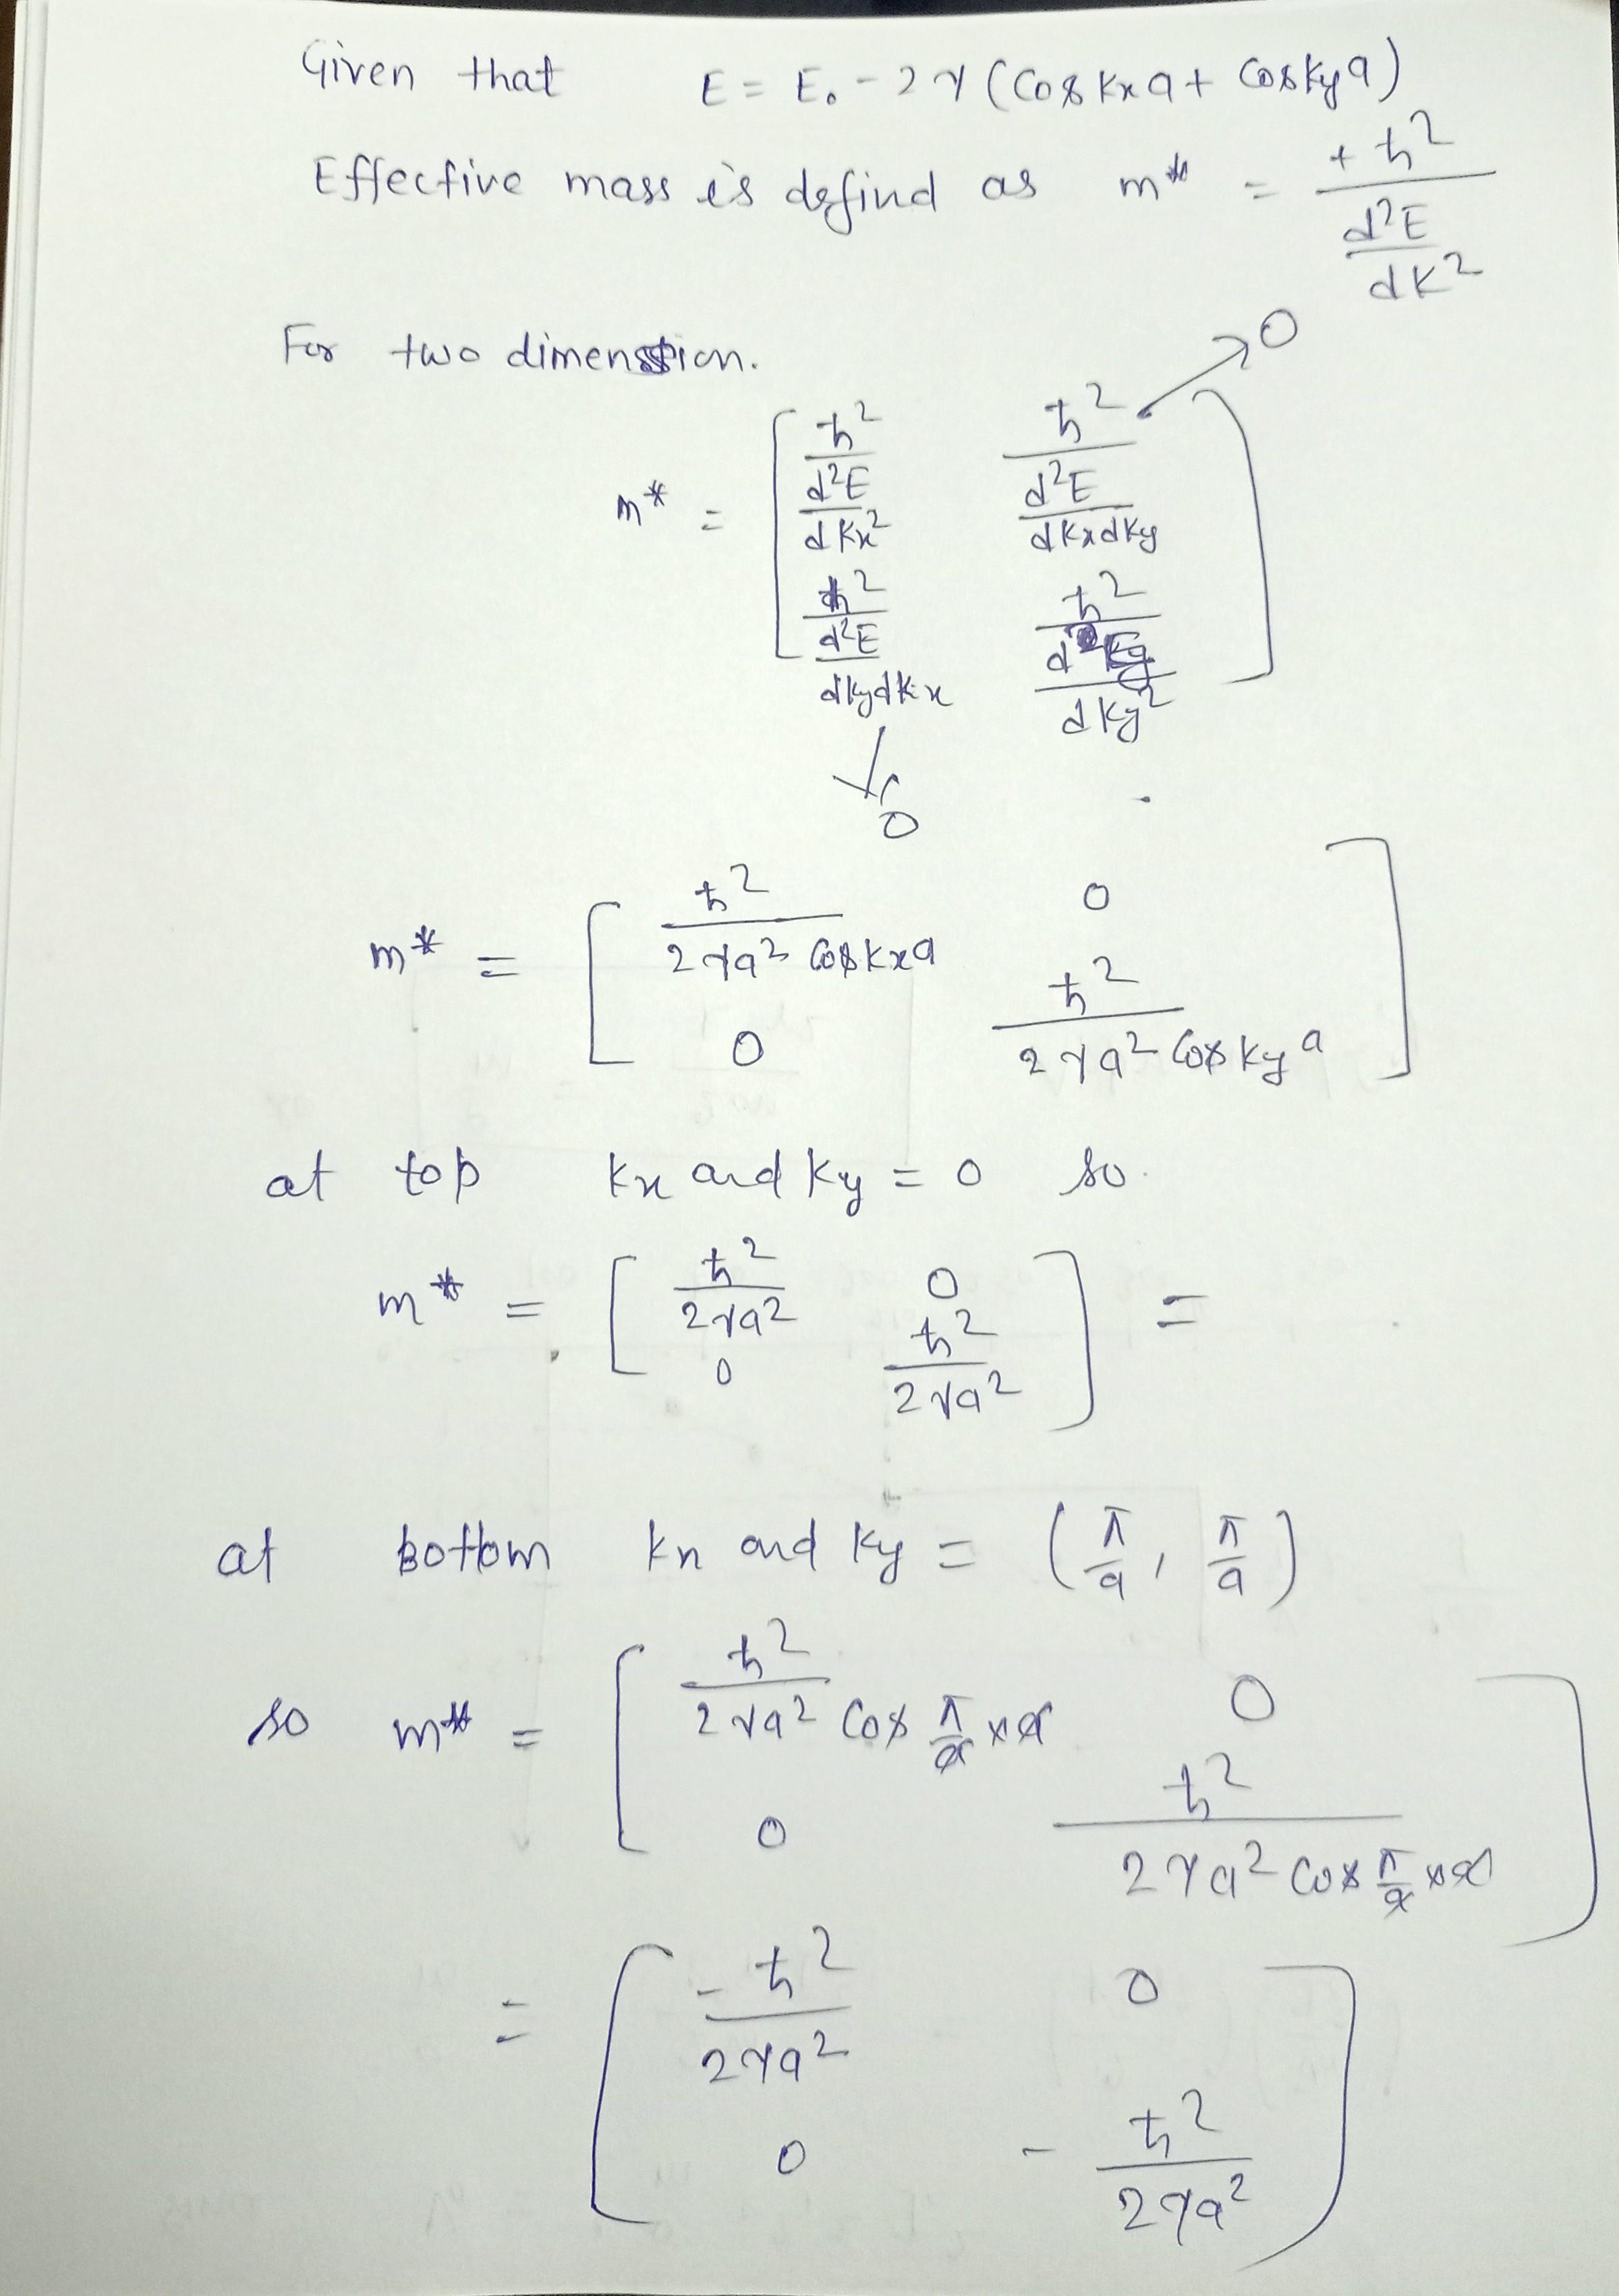 Given that E = E₀ - 2γ (Cos kxa + Cos kya)
Effective mass is defind as m* = +ħ² / (d²E/dk²)
For two dimension.
m* = [ ħ² / (d²E/dkx²) ħ² / (d²E/dkxdky) → 0
ħ² / (d²E/dkydkx) → 0 ħ² / (d²E/dky²) ]
m* = [ ħ² / (2γa² Cos kxa) 0
0 ħ² / (2γa² Cos kya) ]
at top kx and ky = 0 so
m* = [ ħ² / (2γa²) 0
0 ħ² / (2γa²) ] =
at bottom kx and ky = (π/a, π/a)
so m* = [ ħ² / (2γa²) Cos π/a × a 0
0 ħ² / (2γa² Cos π/a × a) ]
= [ -ħ² / (2γa²) 0
0 - ħ² / (2γa²) ]